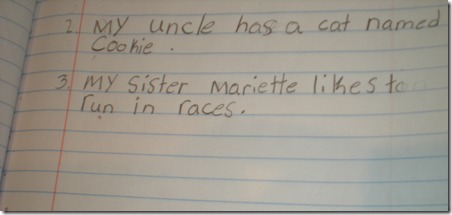 2. My uncle has a cat named
Cookie.
3. My sister Mariette likes to
run in races.